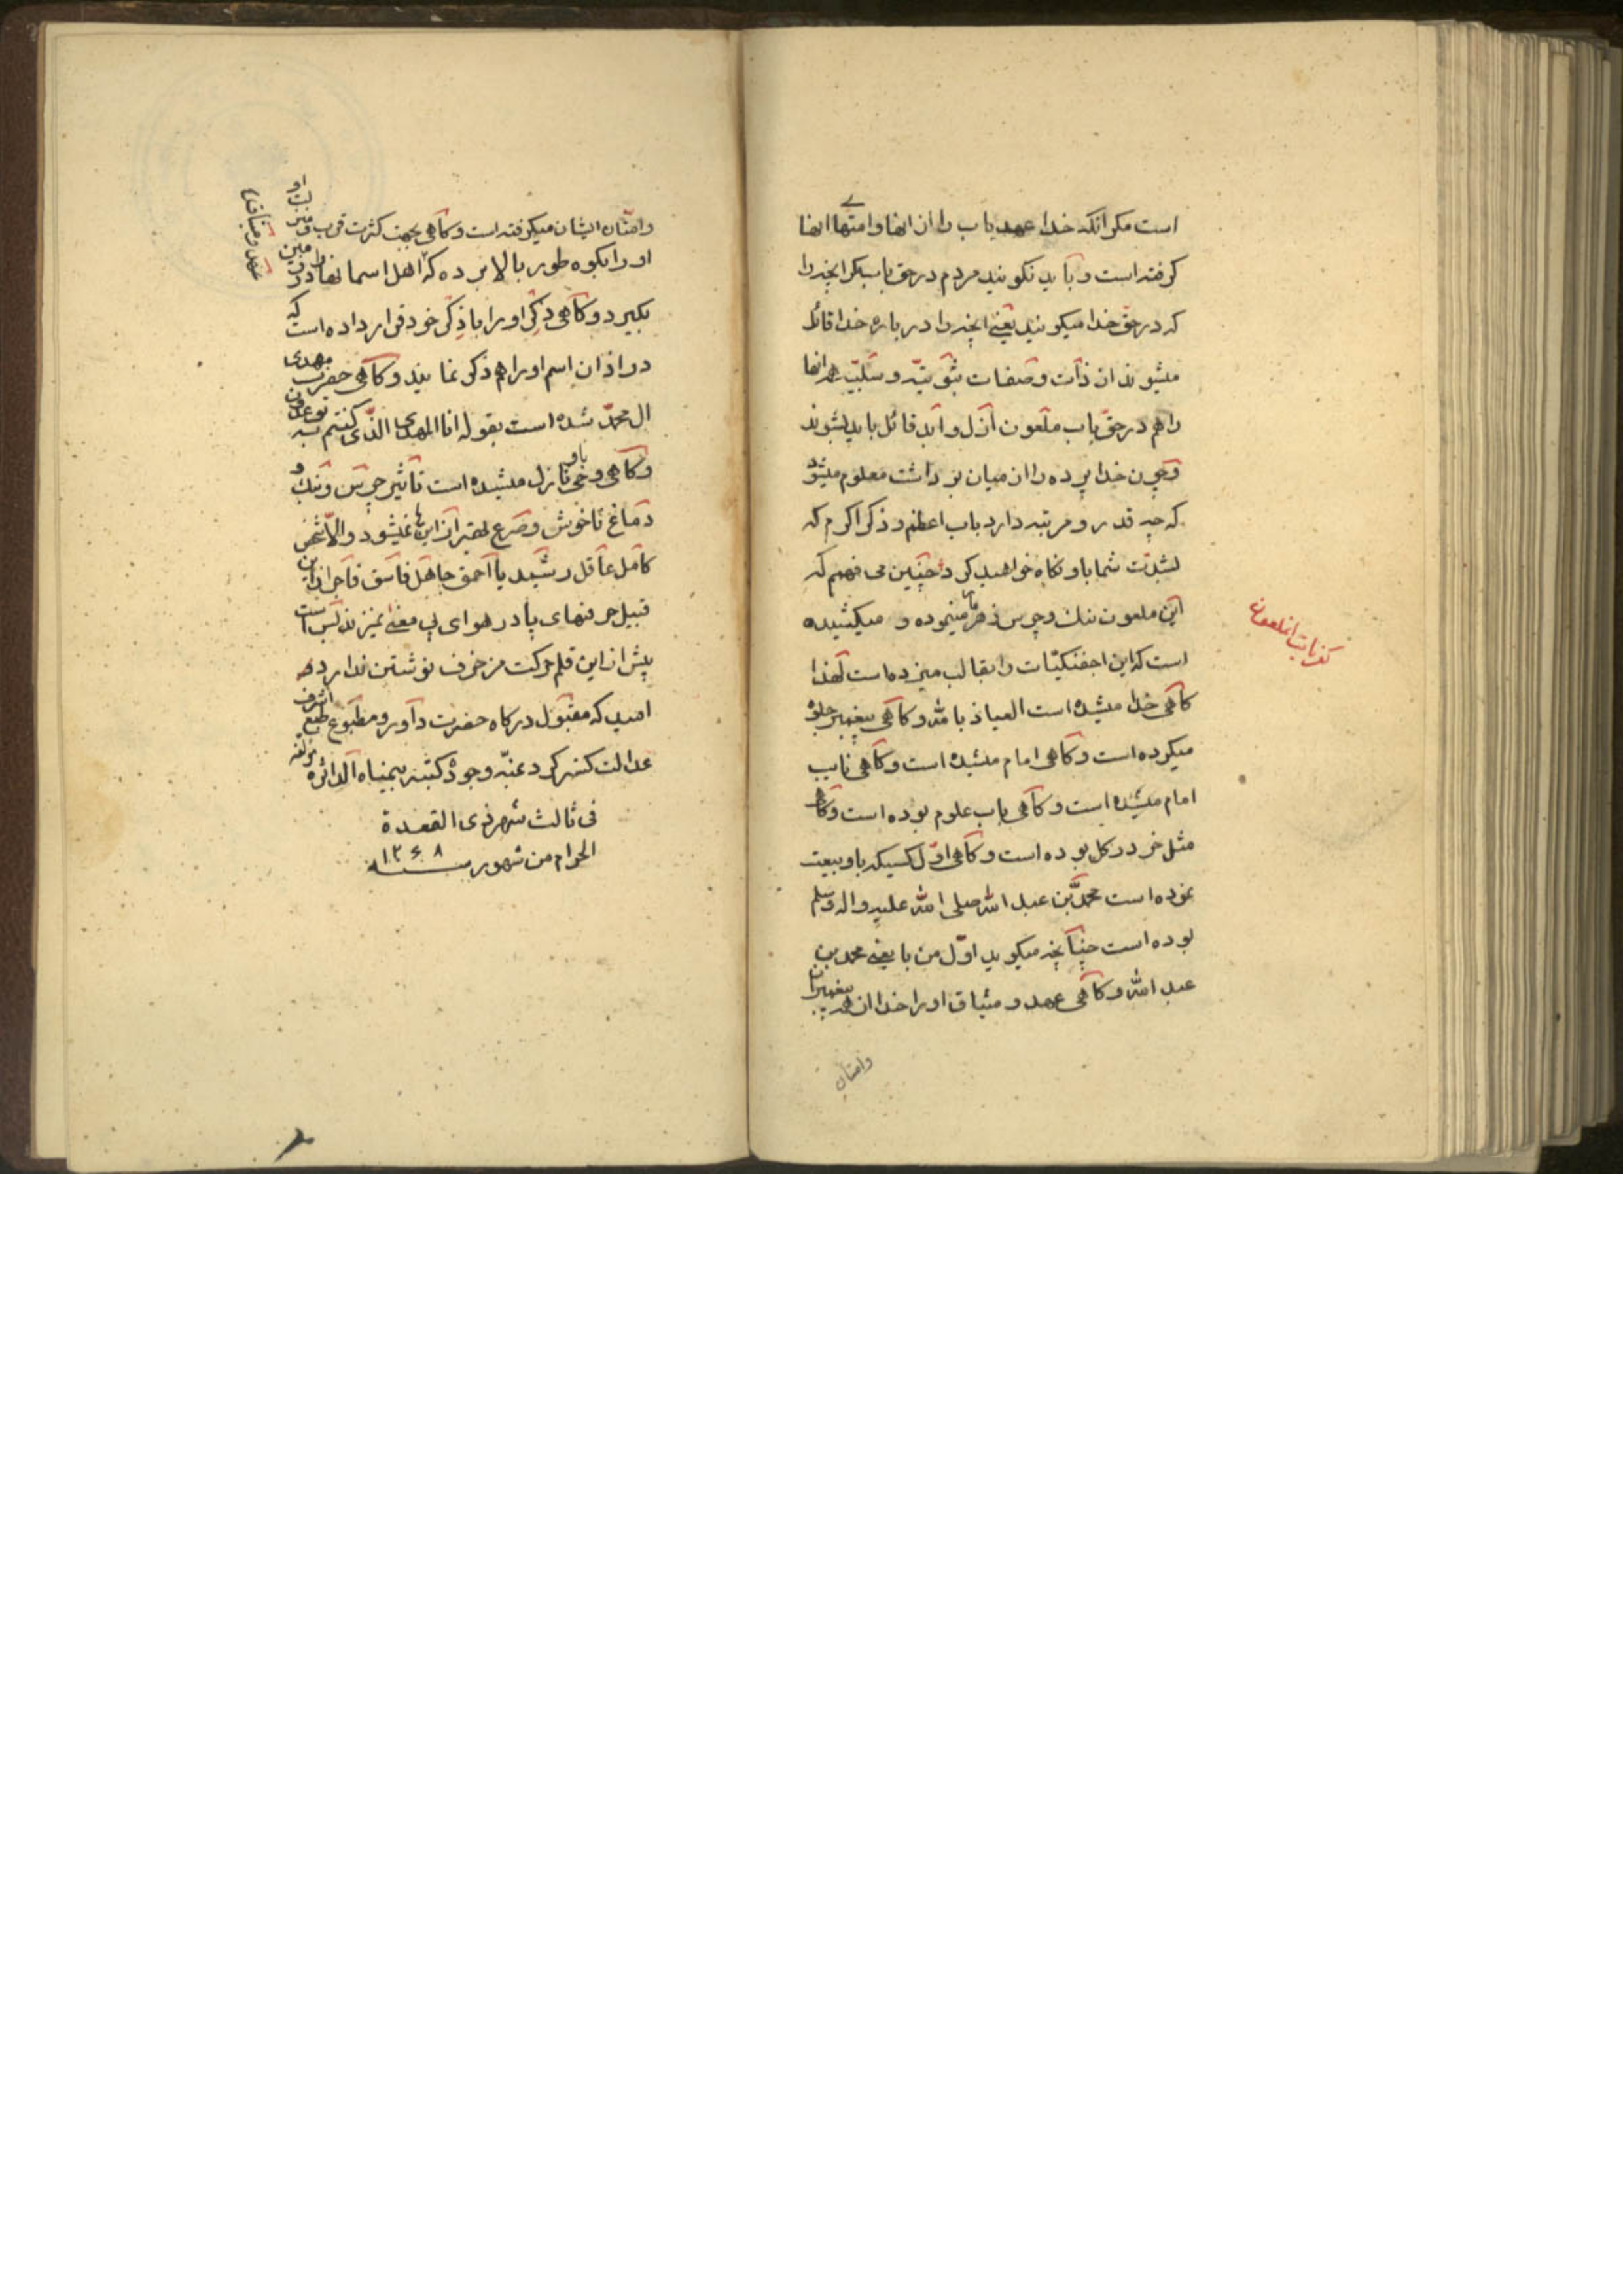 است مکر انکه خدا عهد باب را از انها و امتهاے انها
کرفته است و باید نکویند مردم در حق باب مکر انچه را
که در حق خدا میکویند یعنے انچه را در باره خدا قائل
میشوند از ذات و صفات ثبوتیه و سلبیه همه انها
را هم در حق باب ملعون ازل و ابد قائل باید بشوند
و چون خدا پرده را از میان برداشت معلوم میشود
که چه قدر و مرتبه دارد باب اعظم و ذکر اکرم که
بشدت شما باو نکاه خواهید کرد چنین می فهم که
این ملعون بنك و چرس زهر مار مینموده و میکشیده
است که این اجفنکیات را بقالب میزده است لهذا
کاهی خدا میشده است العیاذ بالله و کاهی پیغمبر جلوه
میکرده است و کاهی امام میشده است و کاهی نایب
امام میشده است و کاهی باب علوم بوده است و کاهی
مثل خر در کل بوده است و کاهی اول کسیکه باو بیعت
نموده است محمد بن عبد الله صلی الله علیه و اله و سلم
بوده است چنانچه میکوید اول من بایعنے محمد بن
عبد الله و کاهی عهد و میثاق او را خدا از همه پیغمبران
وامتان
کذبات انملعون
وامتان ایشان میکرفته است و کاهی بجهت کثرت قرب و منزلت او
او را بکوه طور بالا برده که اهل اسمانها در
عهد و میثاق
بکیرد و کاهی ذکر او را با ذکر خود قرار داده است که
در اذان اسم او را هم ذکر نمایند و کاهی حضرت مهدی
ال محمد شده است بقوله انا المهدی الذی کنتم به توعدون
و کاهی وحی باو نازل میشده است تاثیر چرس و بنك و
دماغ ناخوش و صرع بهتر از اینها نمیشود و الا شخص
کامل عاقل رشید یا احمق جاهل فاسق فاجر از این
قبیل حرفهای پا در هوای بی معنے نمیزند بس است
بیش از این قلم حرکت مزخرف نوشتن ندارد
امید که مقبول درکاه حضرت داور و مطبوع طبع اشرف
عدالت کستر کردد عنه وجوده کتبه بیمناه الداثره مؤلفه
فی ثالث شهر ذی القعدة
الحرام من شهور سنه ۱۲۶۸